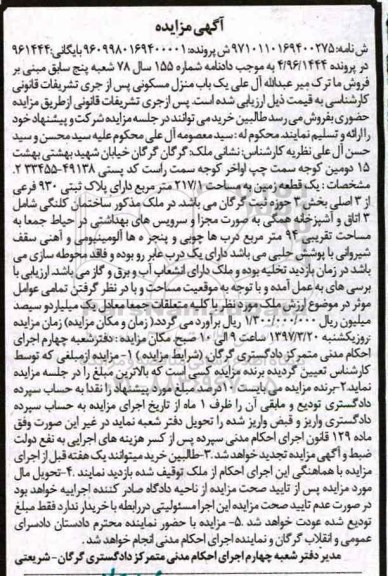 آگهی مزایده
ش نامه: ۹۷۱۰۱۱۰۱۶۹۴۰۰۲۷۵ ش پرونده: ۹۶۰۹۹۸۰۱۶۹۴۰۰۰۰۱ بایگانی: ۹۶۱۴۴۴
در پرونده ۴/۹۶/۱۴۴۴ به موجب دادنامه شماره ۱۵۵ سال ۷۸ شعبه پنج سابق مبنی بر
فروش ما ترک میر عبدالله آل علی یک باب منزل مسکونی پس از جری تشریفات قانونی
کارشناسی به قیمت ذیل ارزیابی شده است. پس از جری تشریفات قانونی از طریق مزایده
حضوری بفروش می رسد طالبین خرید می توانند در جلسه مزایده شرکت و پیشنهاد خود
را ارائه و تسلیم نمایند. محکوم له: سید معصومه آل علی محکوم علیه سید محسن و سید
حسن آل علی نظریه کارشناس: نشانی ملک: گرگان گرگان خیابان شهید بهشتی بهشت
۱۵ دومین کوچه سمت چپ اواخر کوچه سمت راست کد پستی ۴۹۱۳۸-۳۳۴۵۵ ۲
مشخصات: یک قطعه زمین به مساحت ۲۱۷/۱ متر مربع دارای پلاک ثبتی ۹۳۰ فرعی
از ۳ اصلی بخش ۲ حوزه ثبت گرگان می باشد. در ملک مذکور ساختمان کلنگی شامل
۳ اتاق و آشپزخانه همگی به صورت مجزا و سرویس های بهداشتی در حیاط جمعا به
مساحت تقریبی ۹۴ متر مربع درب ها چوبی و پنجره ه ها آلومینیومی و آهنی سقف
شیروانی با پوشش حلبی می باشد دارای یک درب عابر رو بوده و فاقد محوطه سازی می
باشد در زمان بازدید تخلیه بوده و ملک دارای انشعاب آب و برق و گاز می باشد. ارزیابی با
برسی های به عمل آمده و با توجه به موقعیت مساحت و با در نظر گرفتن تمامی عوامل
موثر در موضوع ارزش ملک مورد نظر با کلیه متعلقات جمعا معادل یک میلیارد و سیصد
میلیون ریال ۱/۳۰۰/۰۰۰/۰۰۰ ریال برآورد می گردد ( زمان و مکان مزایده) زمان مزایده
:روز یکشنبه ۱۳۹۷/۳/۲۰ ساعت ۹ الی ۱۰ صبح مکان مزایده: دفتر شعبه چهارم اجرای
احکام مدنی متمرکز دادگستری گرگان (شرایط مزایده) ۱- مزایده از مبلغی که توسط
کارشناس تعیین گردیده برنده مزایده کسی است که بالاترین مبلغ را در جلسه مزایده
نماید ۲-برنده مزایده می بایست ۱۰ درصد مبلغ مورد پیشنهاد را نقدا به حساب سپرده
دادگستری تودیع و مابقی آن را ظرف ۱ ماه از تاریخ اجرای مزایده به حساب سپرده
دادگستری واریز و قبض واریز شده را تحویل دفتر شعبه نماید در غیر این صورت وفق
ماده ۱۲۹ قانون اجرای احکام مدنی سپرده پس از کسر هزینه های اجرایی به نفع دولت
ضبط و آگهی مزایده تجدید خواهد شد. ۳-طالبین خرید میتوانند یک هفته قبل از اجرای
مزایده با هماهنگی این اجرای احکام از ملک توقیف شده بازدید نمایند. ۴-تحویل مال
مورد مزایده پس از تایید صحت مزایده از ناحیه دادگاه صادر کننده اجراییه خواهد بود
در صورت عدم تایید صحت مزایده این اجرا مسئولیتی در رابطه با خریدار ندارد فقط مبلغ
تودیع شده عودت خواهد شد. ۵- مزایده با حضور نماینده محترم دادستان دادسرای
عمومی و انقلاب گرگان و نماینده اجرای احکام مدنی انجام خواهد شد.
مدیر دفتر شعبه چهارم اجرای احکام مدنی متمرکز دادگستری گرگان- شریعتی